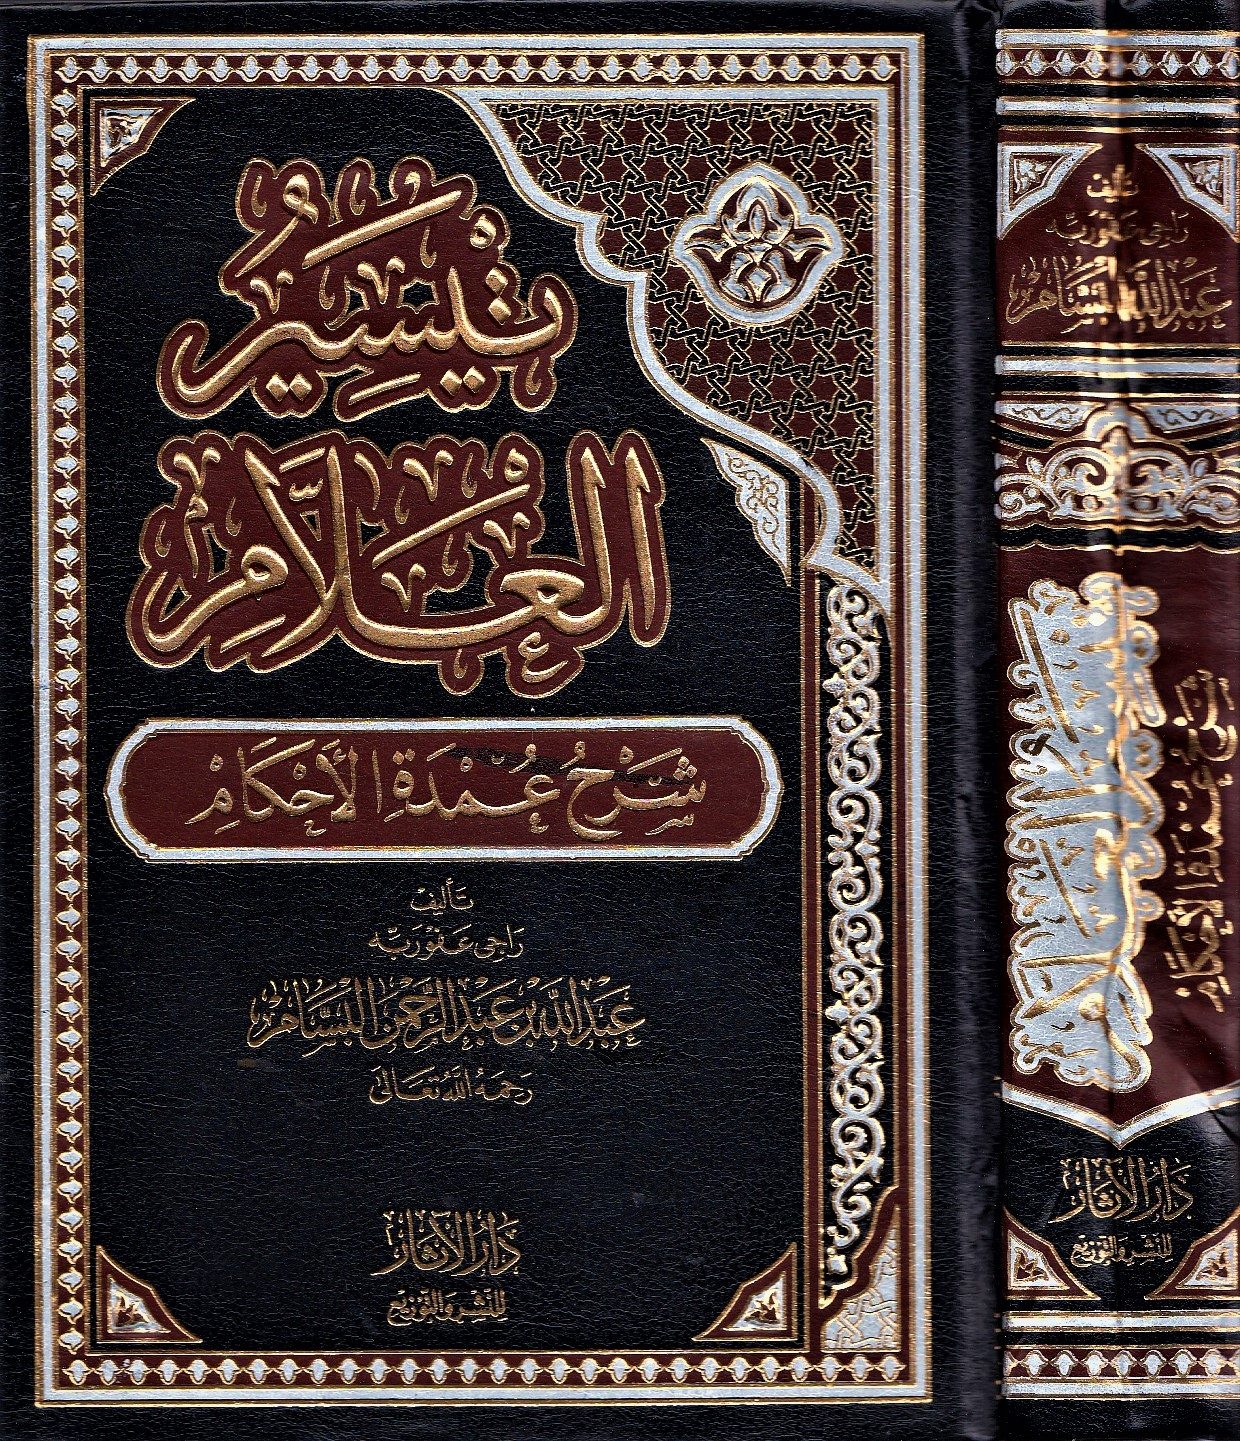 تَيْسِيرُ
العَلَّامِ
شَرْحُ عُمْدَةِ الأَحْكَامِ
تَأليفْ
رَاجِي عَفْوِ رَبِّه
عَبْدُ اللَّه بْن عَبْد الرَّحْمن البَسَّام
رَحِمَهُ اللَّهُ تَعَالَى
دَارُ الآثَار
للنَّشِر وَالتَّوزيْع
تأليف
رَاجِي عَفْوِ رَبِّه
عَبْدُ اللَّه البَسَّام
تيسير العلام
شَرْحُ عُمْدَةِ الأَحْكَامِ
دَارُ الآثَار
للنَّشِر وَالتَّوزيْع